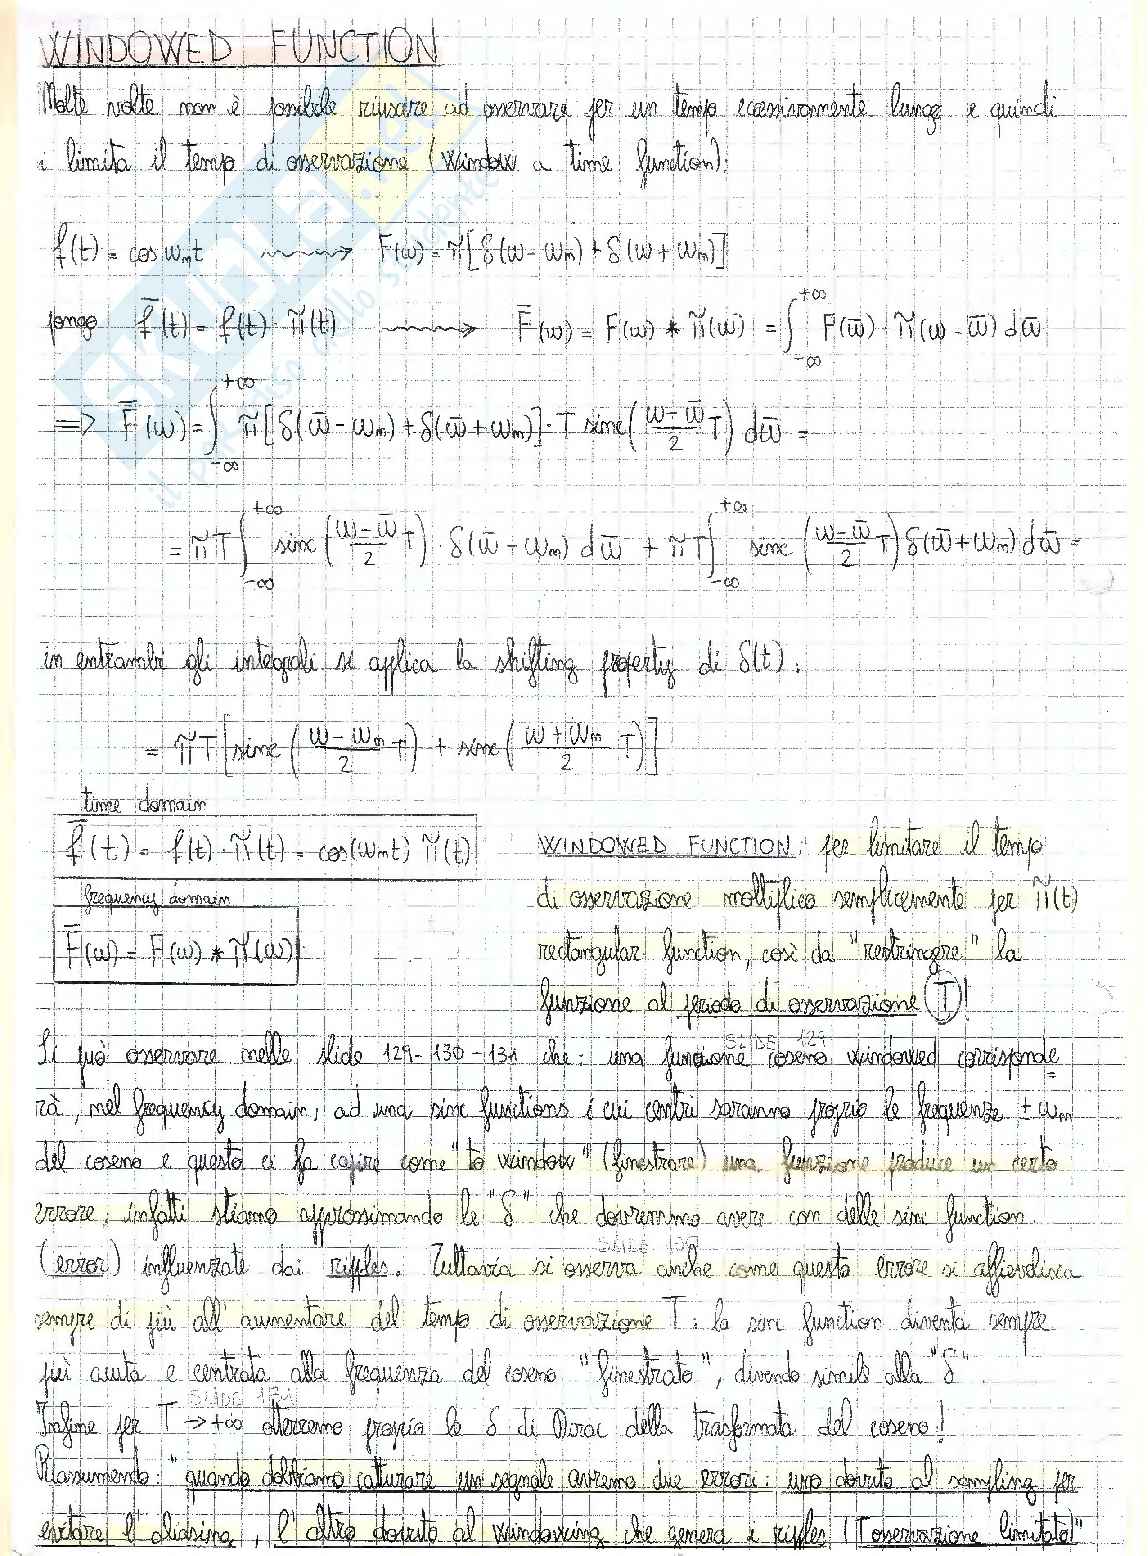 WINDOWED FUNCTION
Molte volte non è possibile riuscire ad osservare per un tempo eccessivamente lungo e quindi
i limita il tempo di osservazione (window a time function):
f(t) = cos ωₘt ⇝ F(ω) = π[δ(ω - ωₘ) + δ(ω + ωₘ)]
pongo f̄(t) = f(t) · π(t) ⇝ F̄(ω) = F(ω) * π(ω) = ∫_{-∞}^{+∞} F(ω̄) · π(ω - ω̄) dω̄
=> F̄(ω) = ∫_{-∞}^{+∞} π[δ(ω̄ - ωₘ) + δ(ω̄ + ωₘ)] · T sinc((ω - ω̄)/2 T) dω̄ =
= πT ∫_{-∞}^{+∞} sinc((ω - ω̄)/2 T) · δ(ω̄ - ωₘ) dω̄ + πT ∫_{-∞}^{+∞} sinc((ω - ω̄)/2 T) δ(ω̄ + ωₘ) dω̄ =
in entrambi gli integrali si applica la shifting property di δ(t):
= πT [sinc((ω - ωₘ)/2 T) + sinc((ω + ωₘ)/2 T)]
time domain
f̄(t) = f(t) · π(t) = cos(ωₘt) π(t)
frequency domain
F̄(ω) = F(ω) * π(ω)
WINDOWED FUNCTION: per limitare il tempo
di osservazione moltiplico semplicemente per π(t)
rectangular function, così da "restringere" la
funzione al periodo di osservazione T!
SLIDE 129
Si può osservare nelle slide 129-130-131 che: una funzione coseno windowed corrisponde
rà, nel frequency domain, ad una sinc functions i cui centri saranno proprio le frequenze ±ωₘ
del coseno e questo ci fa capire come "to window" (finestrare) una funzione produce un certo
errore; infatti stiamo approssimando le "δ" che dovremmo avere con delle sinc function
(error) influenzate dai ripples. Tuttavia si osserva anche come questo errore si affievolisca
sempre di più all'aumentare del tempo di osservazione T: la sinc function diventa sempre
più acuta e centrata alla frequenza del coseno "finestrato", divendo simile alla "δ".
SLIDE 131
Infine per T → +∞ otterremo proprio la δ di Dirac della trasformata del coseno!
Riassumendo: "quando dobbiamo catturare un segnale avremo due errori: uno dovuto al sampling per
evitare l'aliasing, l'altro dovuto al windowing che genera i ripples (T osservazione limitato)"